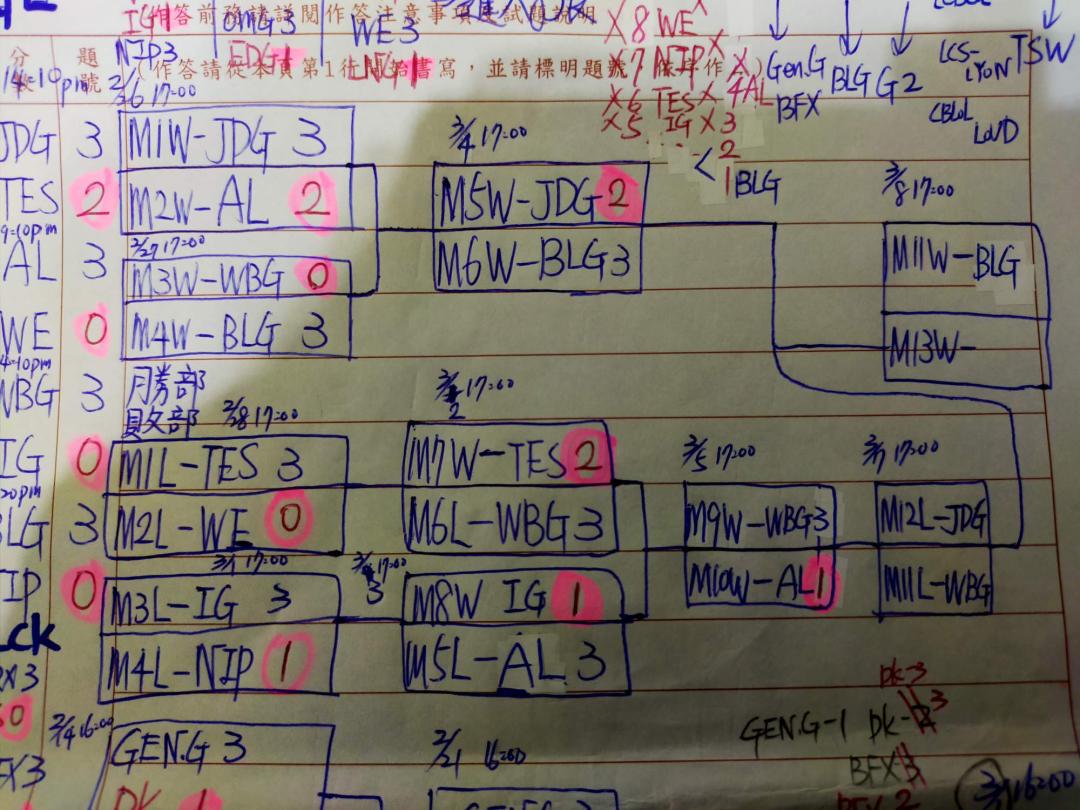 IG1
作答前務請詳閱作答注意事項及試題說明
OMG3
EDG1
WE 3
LNG1
NIP3
（作答請從本頁第1行開始書寫，並請標明題號，依序作答）
題
號
分
14=10pm
X 8 WE X
X 7 NIP X
X 6 TES X
X 5 IG X 3
4AL
< 2
1 BLG
Gen.G
BFX
BLG
G2
LCS-
LYON
TSW
CBLOL
LOUD
2/26 17:00
JDG 3
TES 2
AL 3
WE 0
WBG 3
IG 0
BLG 3
NIP 0
M1W-JDG 3
M2W-AL 2
2/27 17:00
M3W-WBG 0
M4W-BLG 3
3/4 17:00
M5W-JDG 2
M6W-BLG 3
3/8 17:00
M11W-BLG
M13W-
月勞部
員文部
2/28 17:00
M1L-TES 3
M2L-WE 0
3/1 17:00
M3L-IG 3
M4L-NIP 1
3/2 17:00
M7W-TES 2
M6L-WBG 3
3/3 17:00
M8W IG 1
M5L-AL 3
3/5 17:00
M9W-WBG 3
M10W-AL 1
3/7 17:00
M12L-JDG
M11L-WBG
2/14 16:00
GEN.G 3
DK 1
2/1 16:00
DK-3
GEN.G-1 DK-2 3
BFX 3
16:00